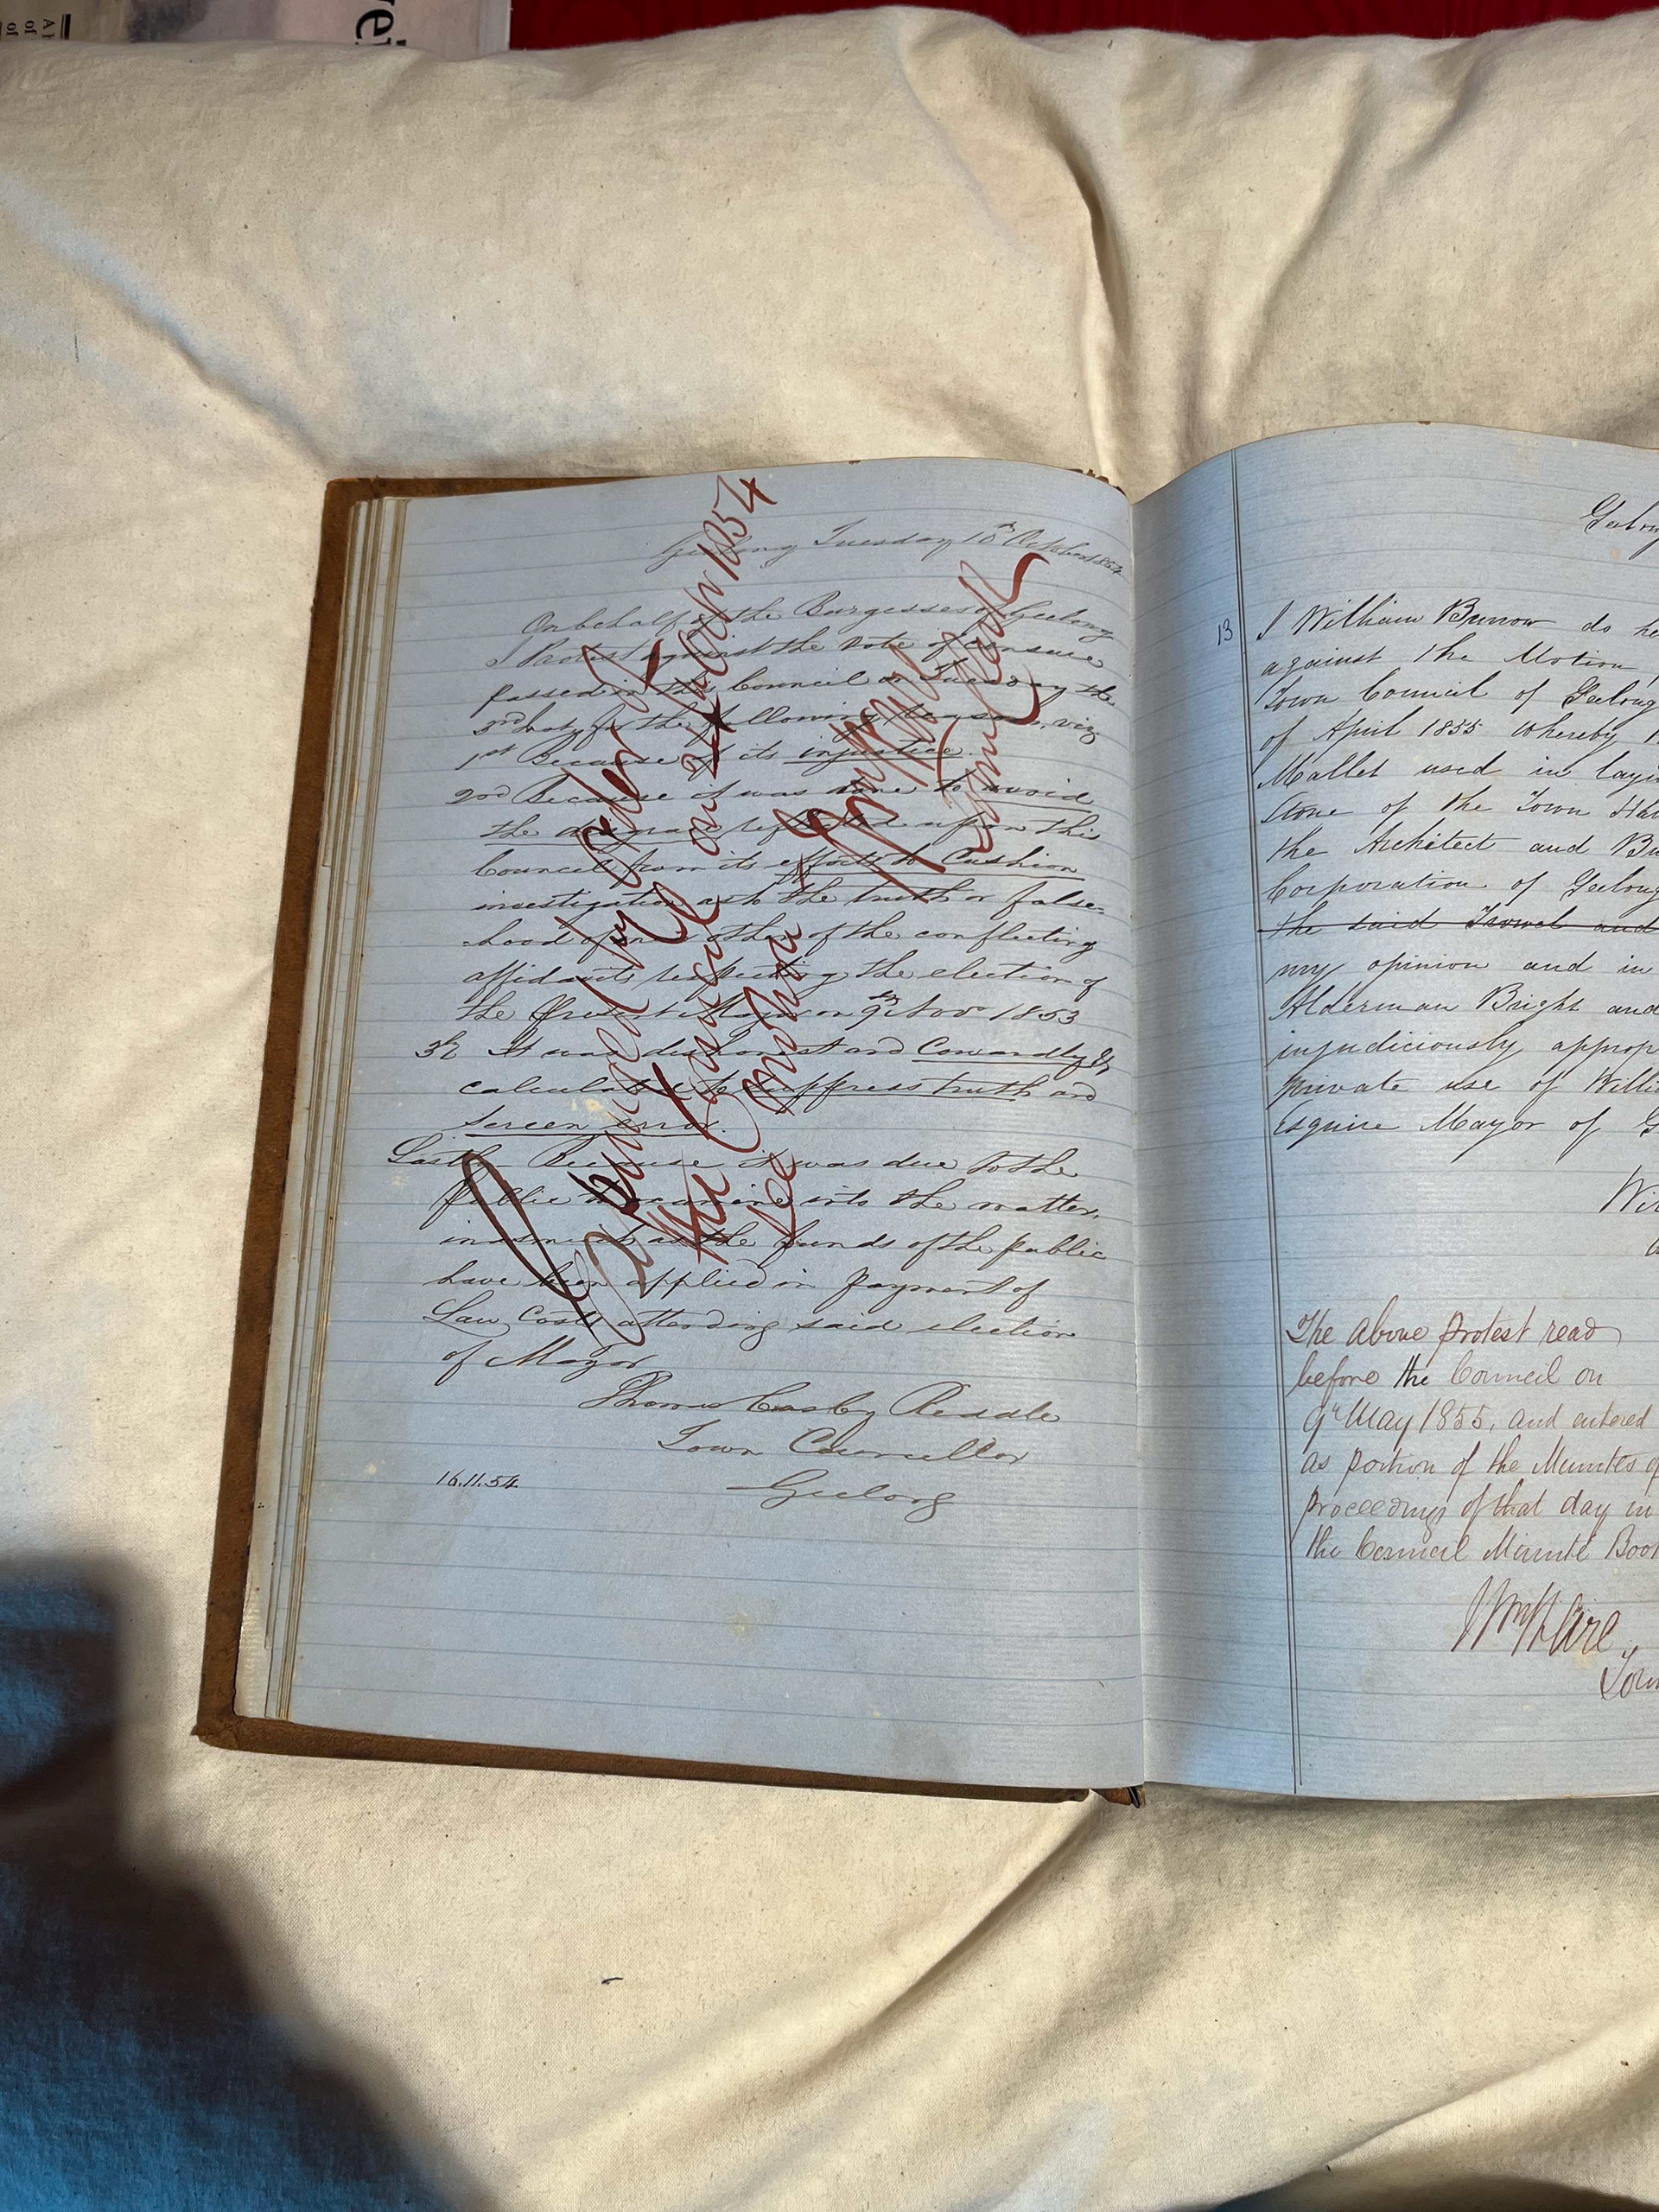 Geelong Tuesday 10th October 1854
On behalf of the Burgesses of Geelong
I Protest against the vote of censure
passed in the Council on Tuesday the
3rd for the following reasons, viz
1st Because of its injustice.
2nd Because it was done to avoid
the disgrace reflected upon this
Council from its efforts to Cushion
investigation as to the truth or false-
hood of one or other of the conflicting
affidavits respecting the election of
the Present Mayor on 9th Nov 1853
3rd It was dishonest and Cowardly &
calculated to suppress truth and
screen error.
Lastly Because it was due to the
Public to examine into the matter,
inasmuch as the funds of the public
have been applied in payment of
Law Costs attending said election
of Mayor
Thomas Casby Reddle
Town Councillor
16.11.54. Geelong
Expunged by Order of
the Council on 2 1854
See Motion
Town Clerk
Geelong
13 I William Burrow do he
against the Motion
Town Council of Geelong
of April 1855 whereby
Mallet used in layi
Stone of the Town Hal
the Architect and Bu
Corporation of Geelong
the said Trowel and
my opinion and in
Alderman Bright and
injudiciously approp
private use of Willi
Esquire Mayor of G
Wil
The above protest read
before the Council on
9th May 1855, and entered
as portion of the Minutes of
proceedings of that day in
the Council Minute Book
Town